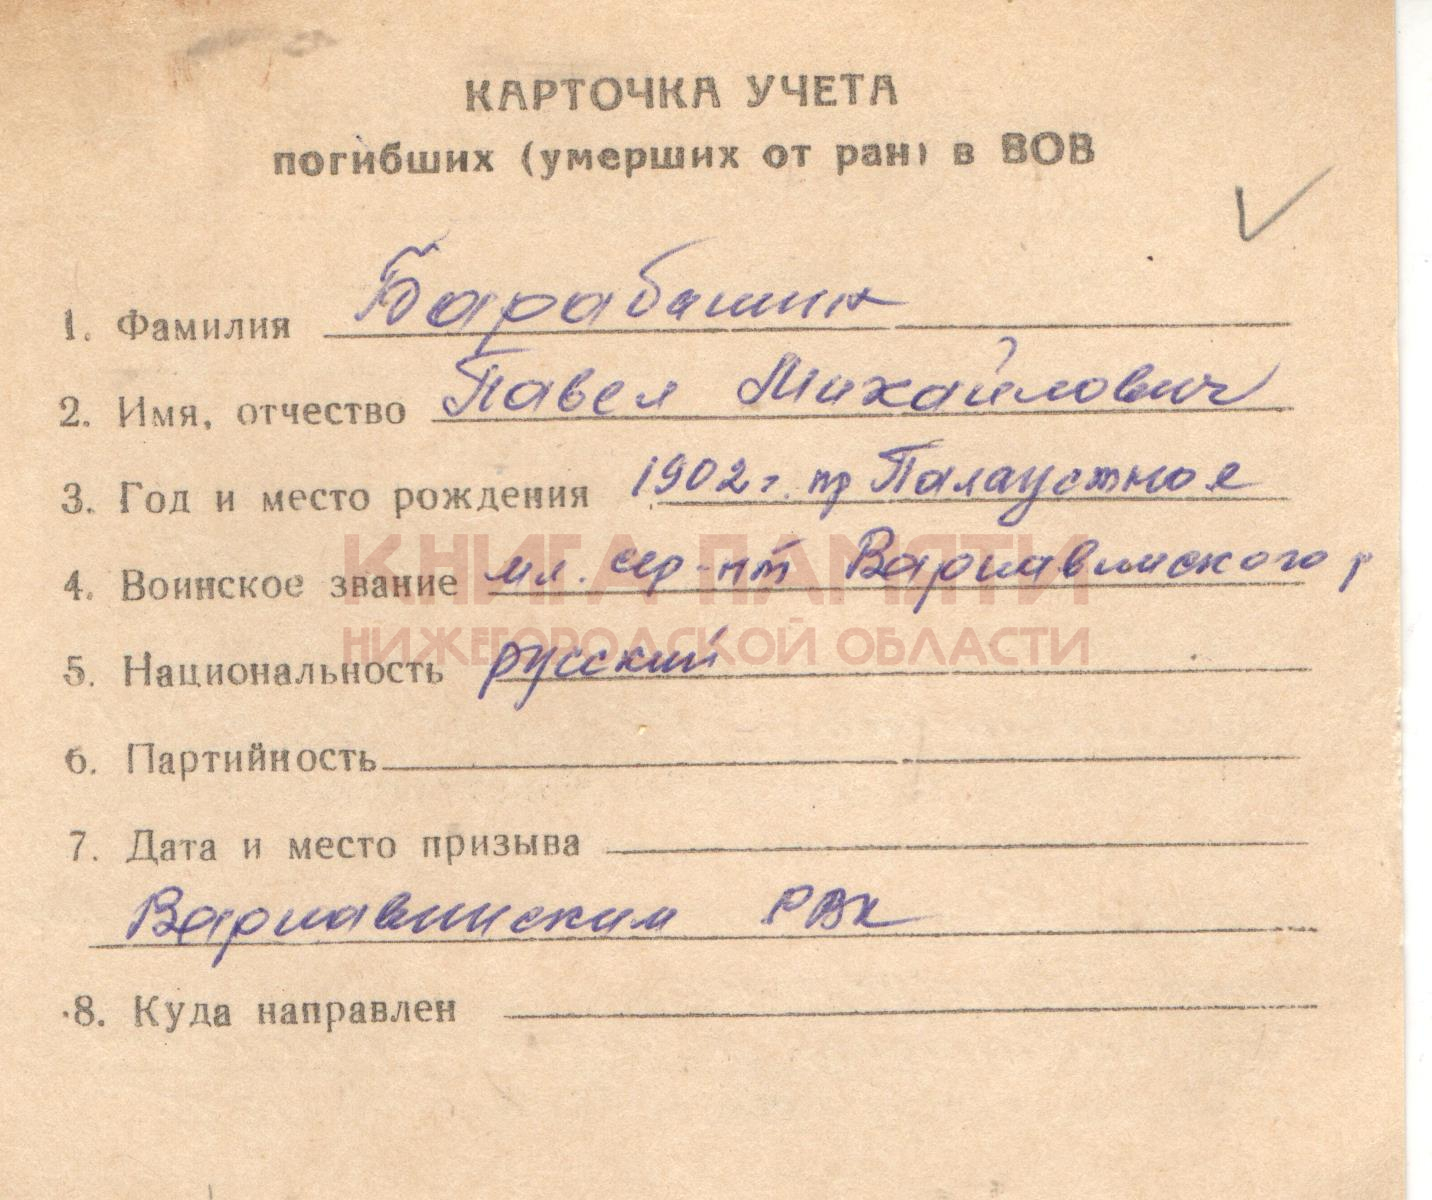 КАРТОЧКА УЧЕТА
погибших (умерших от ран) в ВОВ
1. Фамилия Барабашин
2. Имя, отчество Павел Михайлович
3. Год и место рождения 1902 г. Палаустное
4. Воинское звание мл. сер-нт Варнавинского р
КНИГА ПАМЯТИ
НИЖЕГОРОДСКОЙ ОБЛАСТИ
5. Национальность русский
6. Партийность
7. Дата и место призыва
Варнавинским РВК
8. Куда направлен